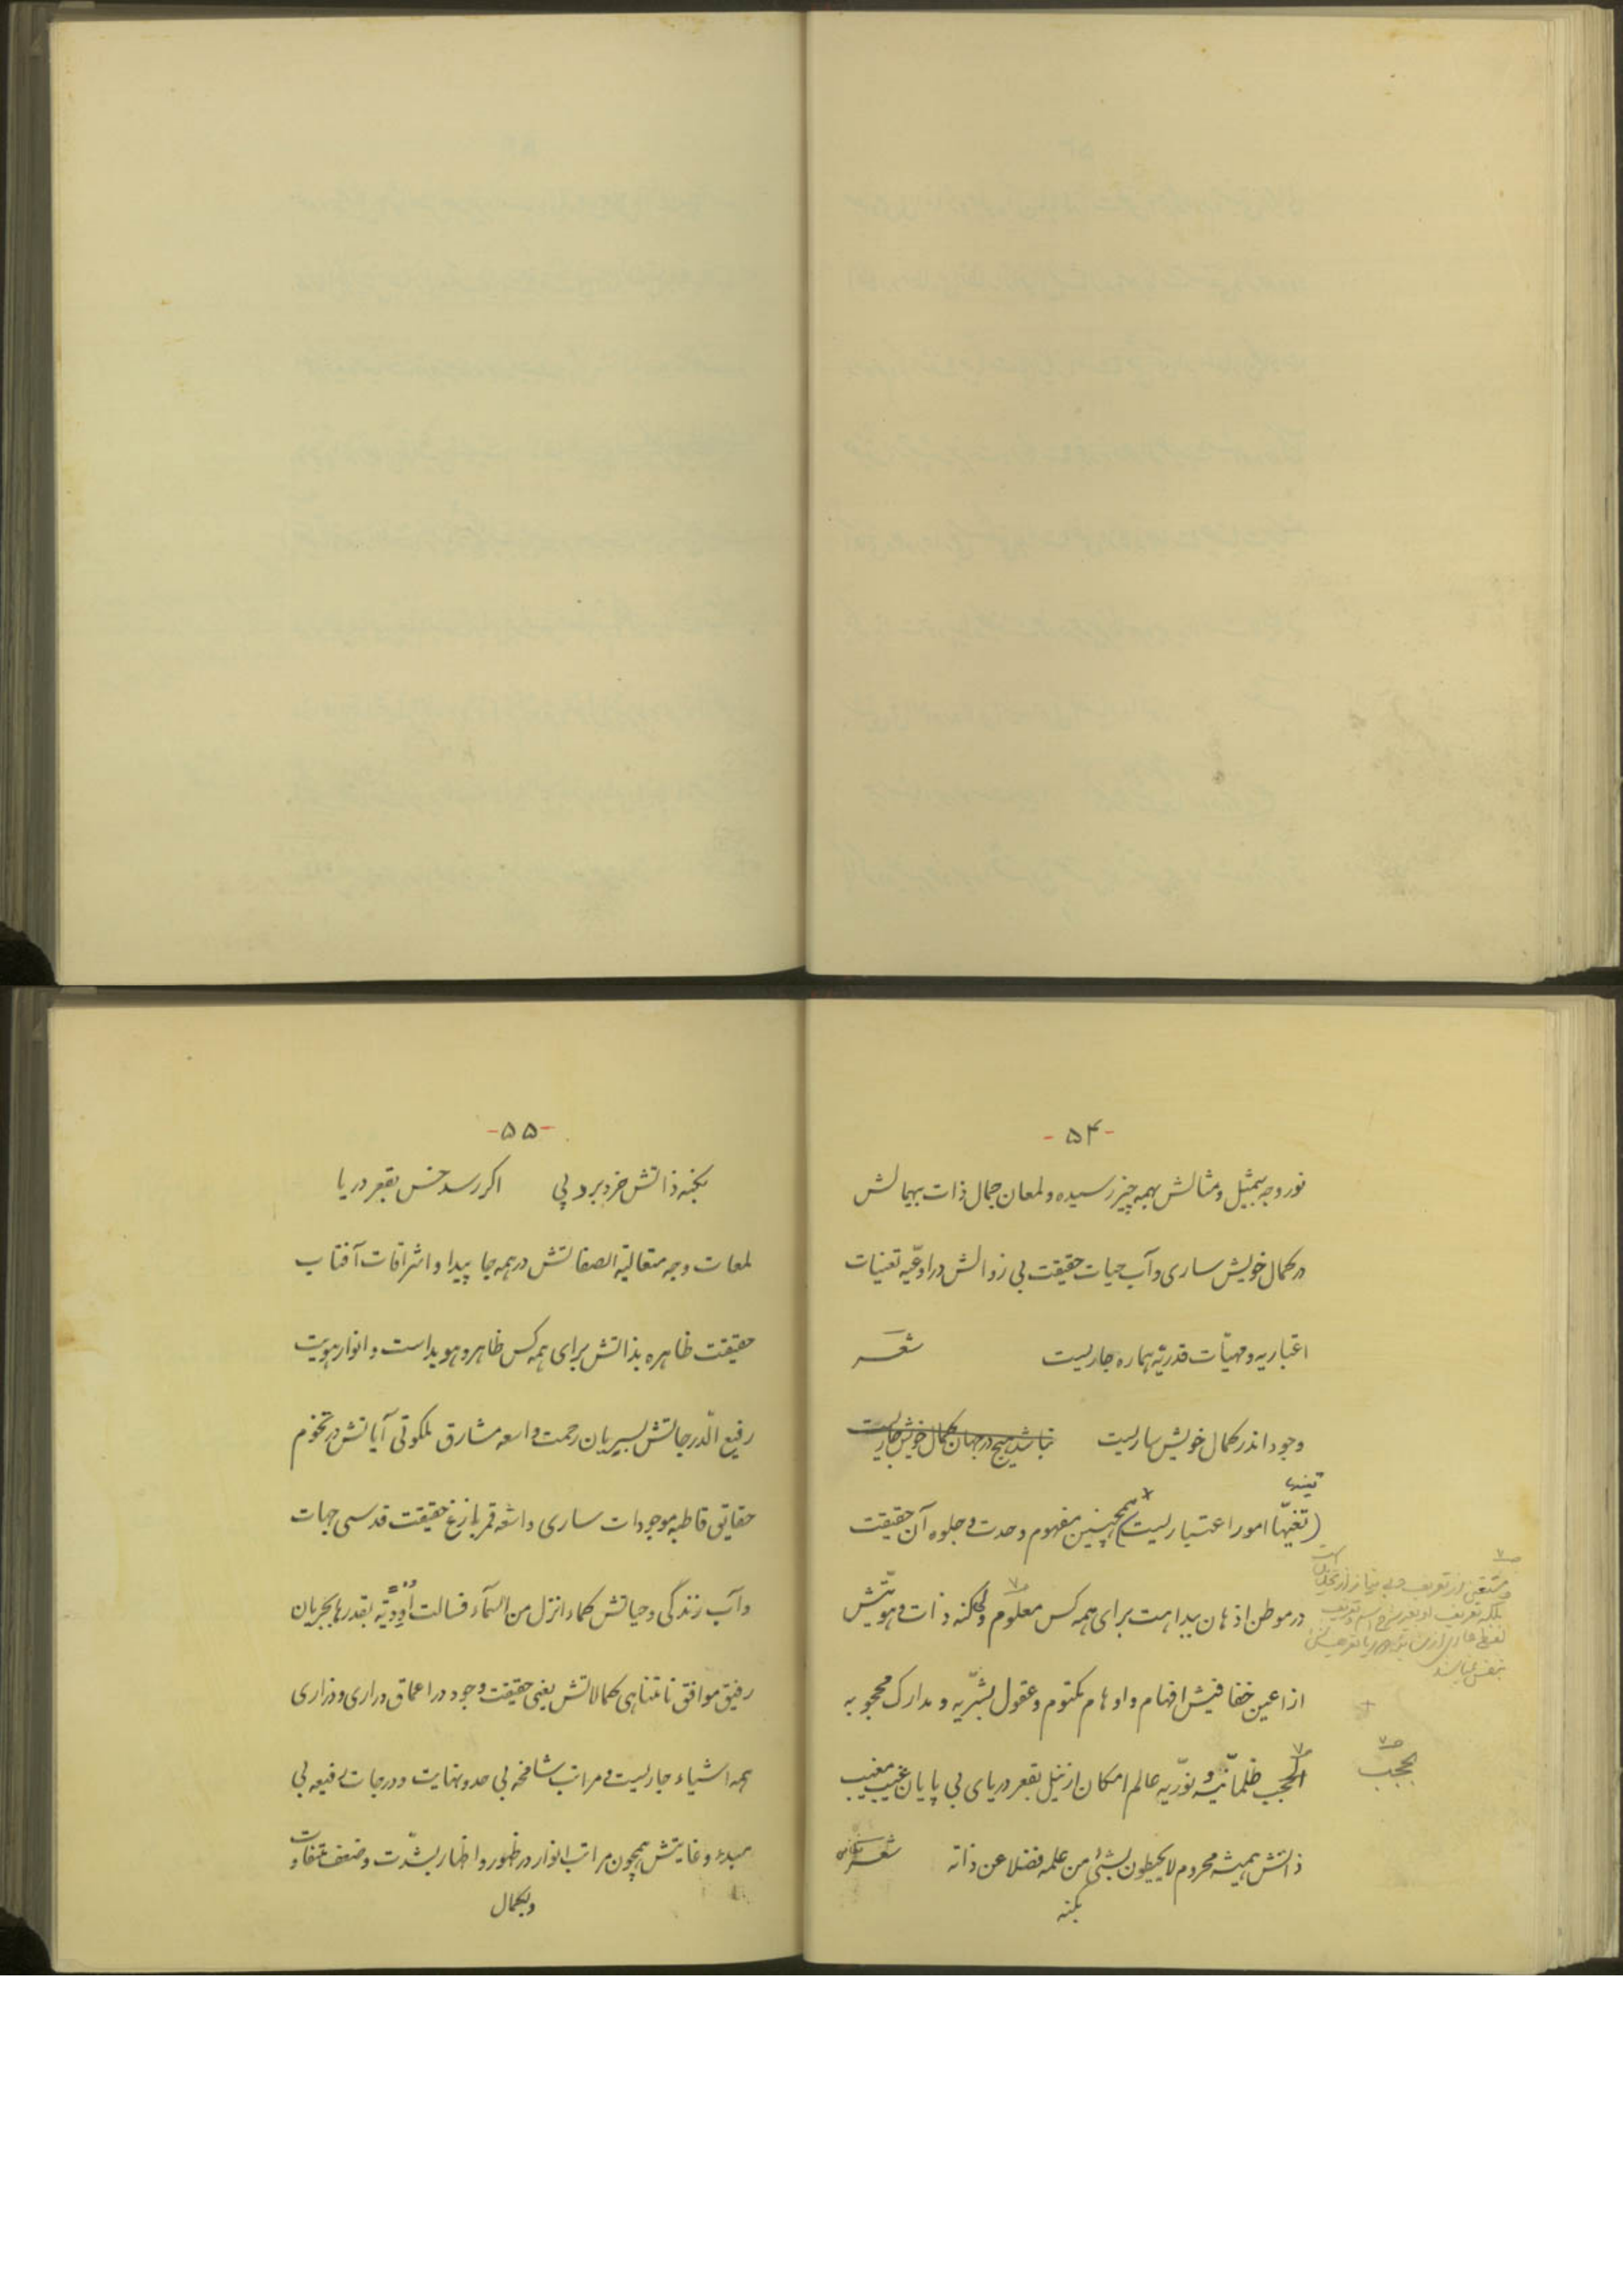 -۵۴-
نور وجه بیمثیل و مثالش بهمه چیز رسیده و لمعان جمال ذات بیهمالش
در کمال خویش ساری و آب حیات حقیقت بی زوالش در اوعیّه تعنیات
اعتباریه و مهیّات قدریّه هماره جاریست شعر
وجود اندر کمال خویش ساریست نباشد هیچ در جهان کمال خویش جاریست
تعینها
(تغیّنها امور اعتباریست) همچنین مفهوم وحدت و جلوه آن حقیقت
در موطن اذهان ببداهت برای همه کس معلوم ولی کنه ذات و هویّتش
از اعین خفافیش افهام و اوهام مکتوم و عقول بشریّه و مدارک محجوبه
الحجب ظلمانیّه و نوّریه عالم امکان از نیل بقعر دریای بی پایان غیب مغیب
بحجب
ذاتش همیشه محروم لایحیطون بشیئ من علمه فضلا عن ذاته شعر
بکنه
-۵۵-
بکنه ذاتش خرد برد پی اگر رسد خس بقعر دریا
لمعات وجه متعالیة الصفاتش در همه جا پیدا و اشراقات آفتاب
حقیقت ظاهره بذاتش برای همه کس ظاهر و هویداست و انوار هویت
رفیع الدّرجاتش بسریان رحمت واسعه مشارق ملکوتی آیاتش در تخوم
حقایق قاطبه موجودات ساری و اشعه قمر بازغ حقیقت قدسی جهات
و آب زندگی و حیاتش کماء انزل من السّماء فسالت اودیّة بقدرها بجریان
رفیق موافق نامتناهی کمالاتش یعنی حقیقت وجود در اعماق دراری و ذراری
همه اشیاء جاریست و مراتب شامخه بی حد و نهایت و درجات رفیعه بی
مبدء و غایتش همچون مراتب انوار در ظهور و اظهار بشدّت و ضعف متفاوت
و بکمال